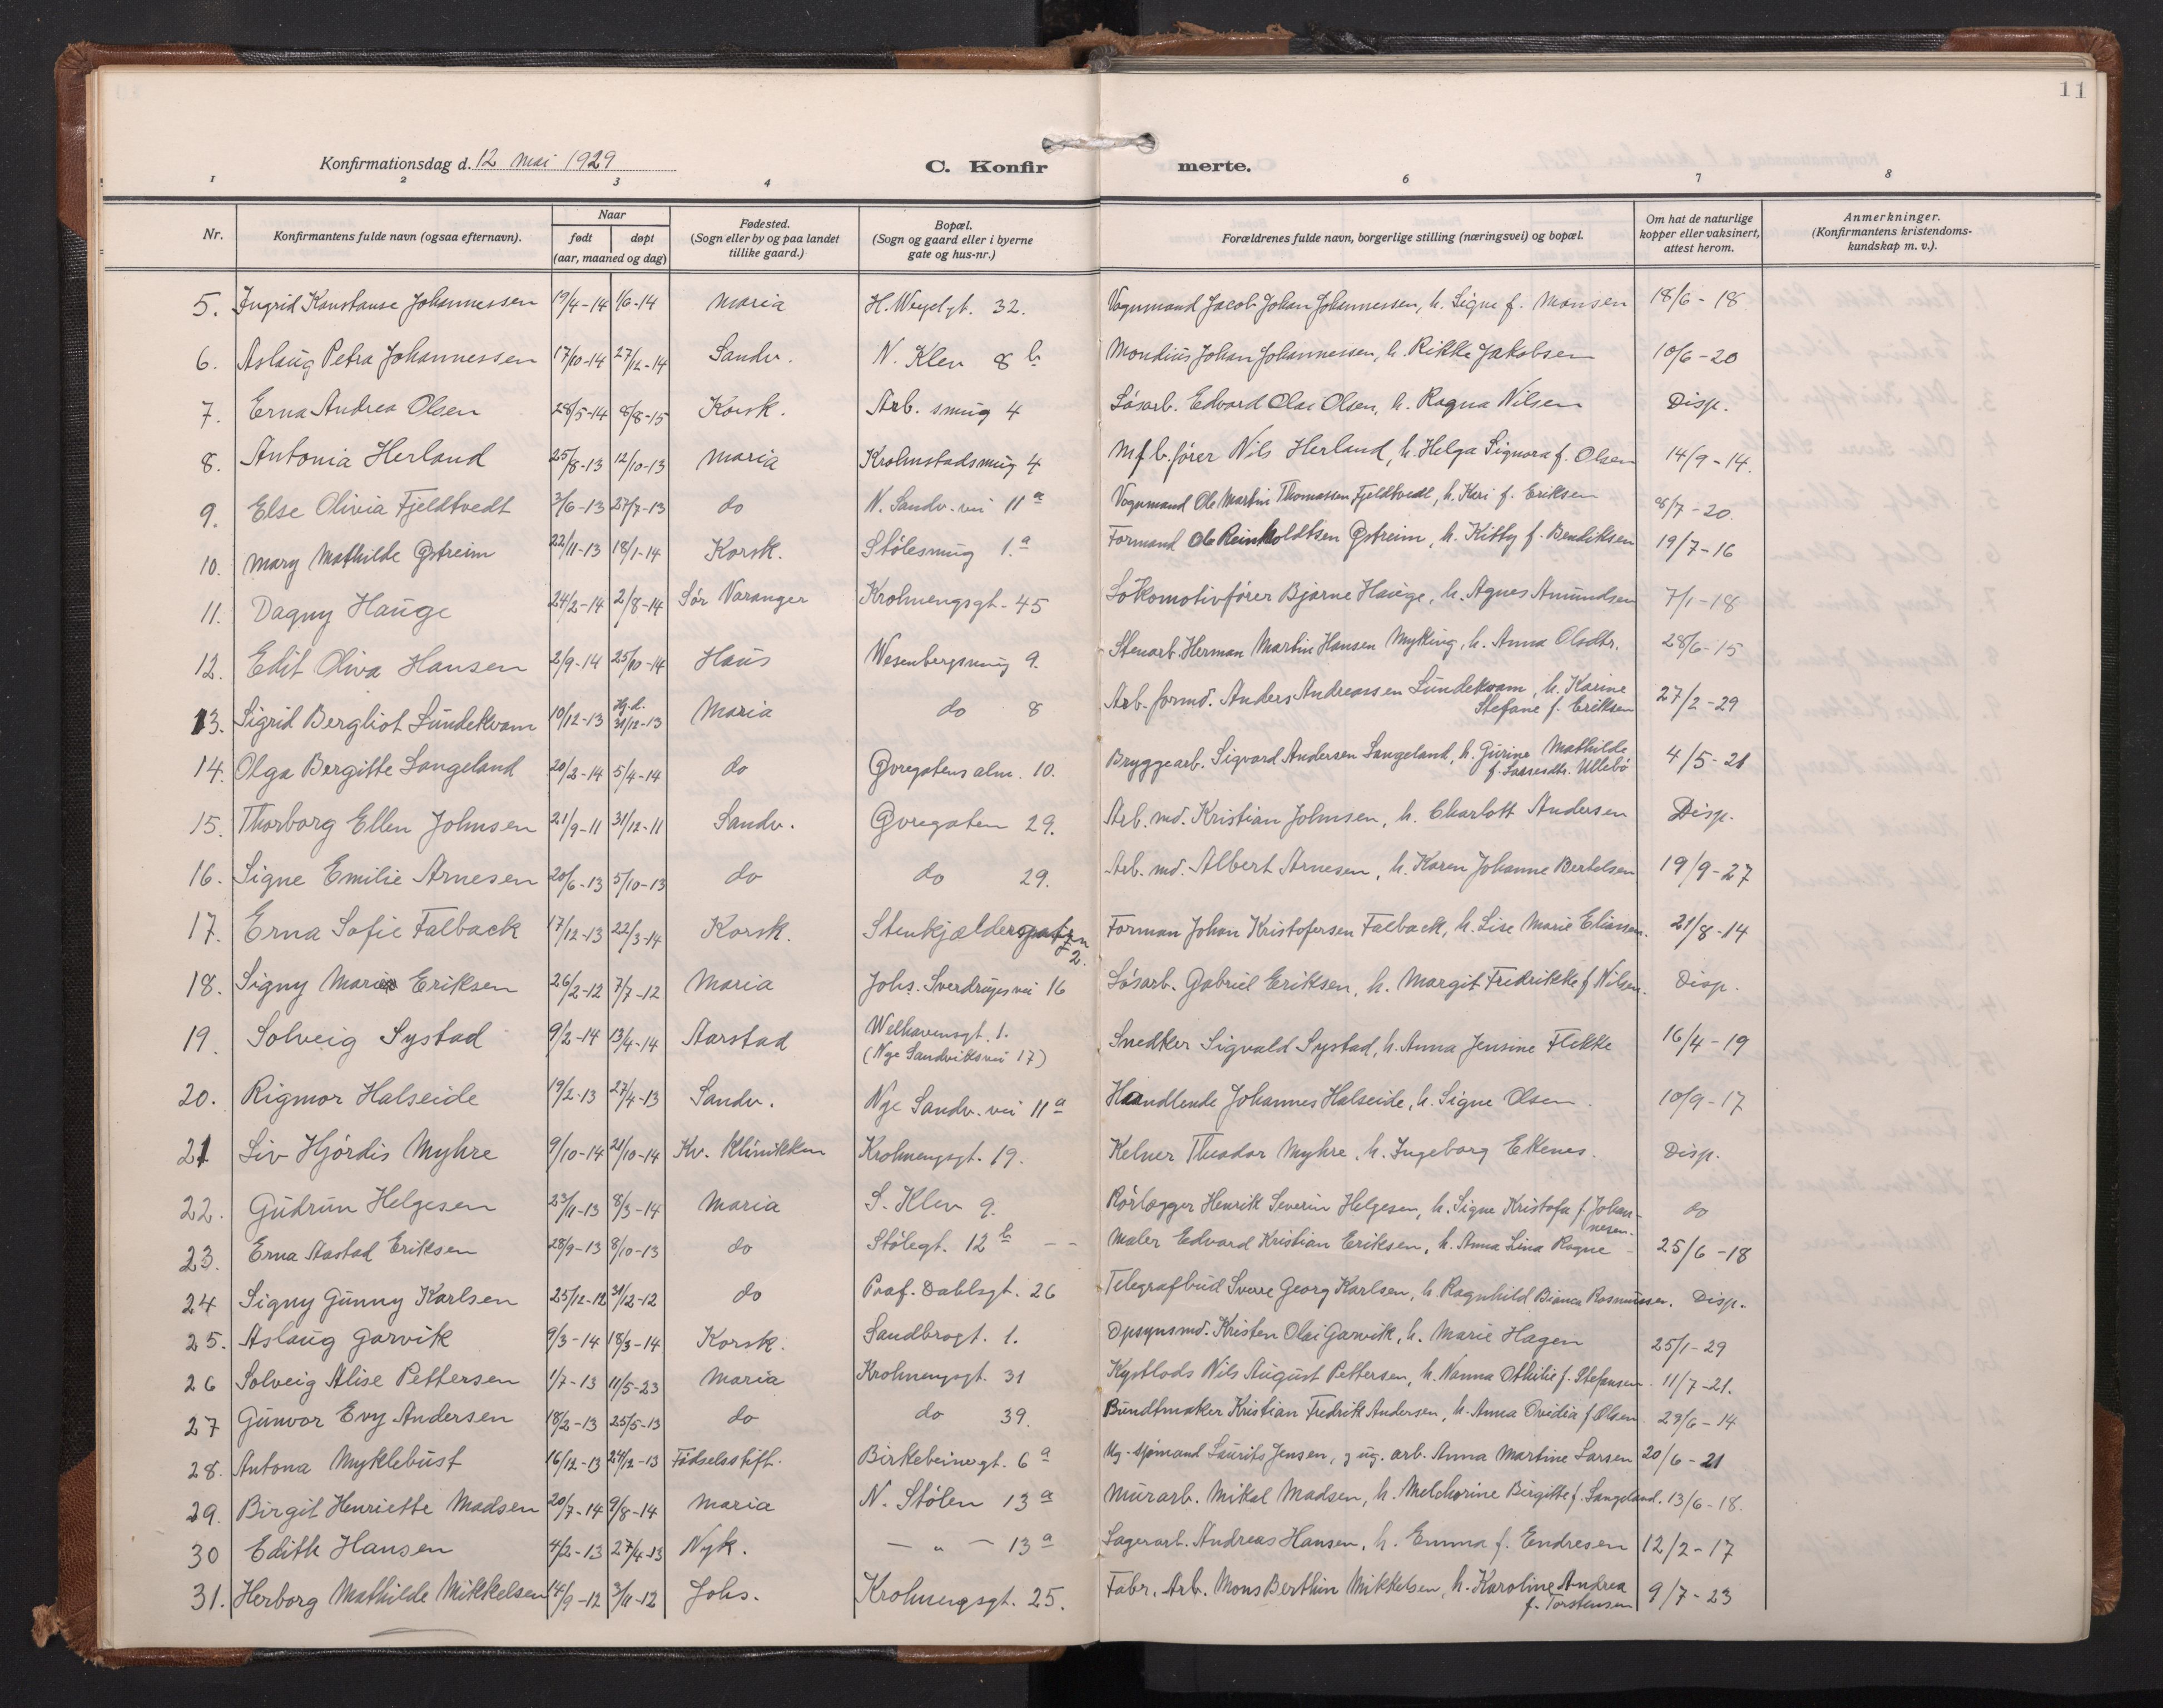 11
Konfirmationsdag d. 12 mai 1929
C. Konfir merte.
1 2 3 4 6 7 8
Nr. Konfirmantens fulde navn (ogsaa efternavn). Naar født døpt (aar, maaned og dag) Fødested. (Sogn eller by og paa landet tillike gaard.) Bopæl. (Sogn og gaard eller i byerne gate og hus-nr.) Forældrenes fulde navn, borgerlige stilling (næringsvei) og bopæl. Om hat de naturlige kopper eller vaksinert, attest herom. Anmerkninger. (Konfirmantens kristendoms-kundskap m. v.).
5. Ingrid Konstanse Johannessen 19/4-14 1/6-14 Maria H. Weydgt. 32. Vognmand Jacob Johan Johannessen, h. Signe f. Monsen 18/6-18
6. Aslaug Petra Johannessen 17/10-14 27/12-14 Sandv. N. Klev 8 b Mondius Johan Johannessen, h. Rikke Jakobsen 10/6-20
7. Erna Andrea Olsen 28/5-14 8/8-15 Korsk. Arb. smug 4 Løsarb. Edvard Olai Olsen, h. Ragna Nilsen Disp.
8. Antonia Herland 25/8-13 12/10-13 Maria Krohnstadsmug 4 Mfb. fører Nils Herland, h. Helga Signora f. Olsen 14/9-14.
9. Else Olivia Fjeldtvedt 3/6-13 27/7-13 do N. Sandv. vei 11 a Vognmand Ole Martin Thomassen Fjeldtvedt, h. Kari f. Eriksen 8/7-20
10. Mary Mathilde Østreim 22/11-13 18/1-14 Korsk. Stølesmug 1.a Formand Ole Reinholdtsen Østreim, h. Kitty f. Bendiksen 19/7-16
11. Dagny Hauge 24/2-14 2/8-14 Sør Varanger Krohnengsgt. 45 Lokomotivfører Bjarne Hauge, h. Agnes Amundsen 7/1-18
12. Edit Oliva Hansen 2/9-14 25/10-14 Haus Wesenbergsmug 9. Stenarb. Herman Martin Hansen Myking, h. Anna Olsdtr. 28/6-15
13. Sigrid Bergliot Lundekvam 10/12-13 Hj.d. 31/12-13 Maria do 8 Arb. formd. Anders Andreassen Lundekvam, h. Karine Stefane f. Eriksen 27/2-29
14. Olga Bergitte Langeland 20/2-14 5/4-14 do Øvregatens alm. 10. Bryggearb. Sigvard Andersen Langeland, h. Gurine Mathilde f. Larsesdtr. Ullebø 4/5-21
15. Thorborg Ellen Johnsen 21/9-11 31/12-11 Sandv. Øvregaten 29. Arb. md. Kristian Johnsen, h. Charlott Andersen Disp.
16. Signe Emilie Arnesen 20/6-13 5/10-13 do do 29. Arb. md. Albert Arnesen, h. Karen Johanne Bertelsen 19/9-27
17. Erna Sofie Falback 17/12-13 22/3-14 Korsk. Stenkjældergaten 2. Forman Johan Kristofersen Falback, h. Lise Marie Eliassen. 21/8-14
18. Signy Marie Eriksen 26/2-12 7/7-12 Maria Johs. Sverdrupsvei 16 Løsarb. Gabriel Eriksen, h. Margit Fredrikke f. Nilsen. Disp.
19. Solveig Systad 9/2-14 13/4-14 Aarstad Welhavensgt. 1. (Nye Sandviksvei 17) Snedker Sigvald Systad, h. Anna Jensine Flekke 16/4-19
20. Rigmor Halseide 19/2-13 27/4-13 Sandv. Nye Sandv. vei 11 a Handlende Johannes Halseide, h. Signe Olsen. 10/9-17
21 Liv Hjørdis Myhre 9/10-14 21/10-14 Kv. Klinikken Krohnengsgt. 19. Kelner Theodor Myhre, h. Ingeborg Ekenes. Disp.
22. Gudrun Helgesen 23/11-13 8/3-14 Maria S. Klev 9. Rørlægger Henrik Severin Helgesen, h. Signe Kristofa f. Johan-nesen. do
23. Erna Aastad Eriksen 28/9-13 8/10-13 do Stølegt. 12 b - - Maler Edvard Kristian Eriksen, h. Anna Lina Rogne - 25/6-18
24 Signy Gunny Karlsen 25/12-12 31/12-12 do Prof. Dahlsgt. 26 Telegrafbud Sverre Georg Karlsen, h. Ragnhild Bianca Rasmussen. Disp.
25. Aslaug Garvik 9/3-14 18/3-14 Korsk. Sandbrogt. 1. Opsynsmd. Kristen Olai Garvik, h. Marie Hagen 25/1-29
26 Solveig Alise Pettersen 1/7-13 11/5-23 Maria Krohnengsgt. 31 Kystlods Nils August Pettersen, h. Nanna Othilie f. Stefansen. 11/7-21.
27 Gunvor Evy Andersen 18/2-13 25/5-13 do do 39. Bundtmaker Kristian Fredrik Andersen, h. Anna Ovidia f. Olsen. 29/6-14
28. Antona Myklebust 16/12-13 24/12-13 Fødselsstift. Birkebeinergt. 6 a Ug. sjømand Laurits Jensen, g ug. arb. Anna Martine Larsen 20/6-21
29. Birgit Henriette Madsen 20/7-14 9/8-14 Maria N. Stølen 13 a Murarb. Mikal Madsen, h. Melchorine Birgitte f. Langeland. 13/6-18.
30 Edith Hansen 4/2-13 27/4-13 Nyk. — " — 13 a Lagerarb. Andreas Hansen, h. Emma f. Endresen 12/2-17
31. Herborg Mathilde Mikkelsen 14/9-12 3/11-12 Johs. Krohnengsgt. 25. Fabr. Arb. Mons Berthin Mikkelsen, h. Karoline Andrea f. Torstensen 9/7-23